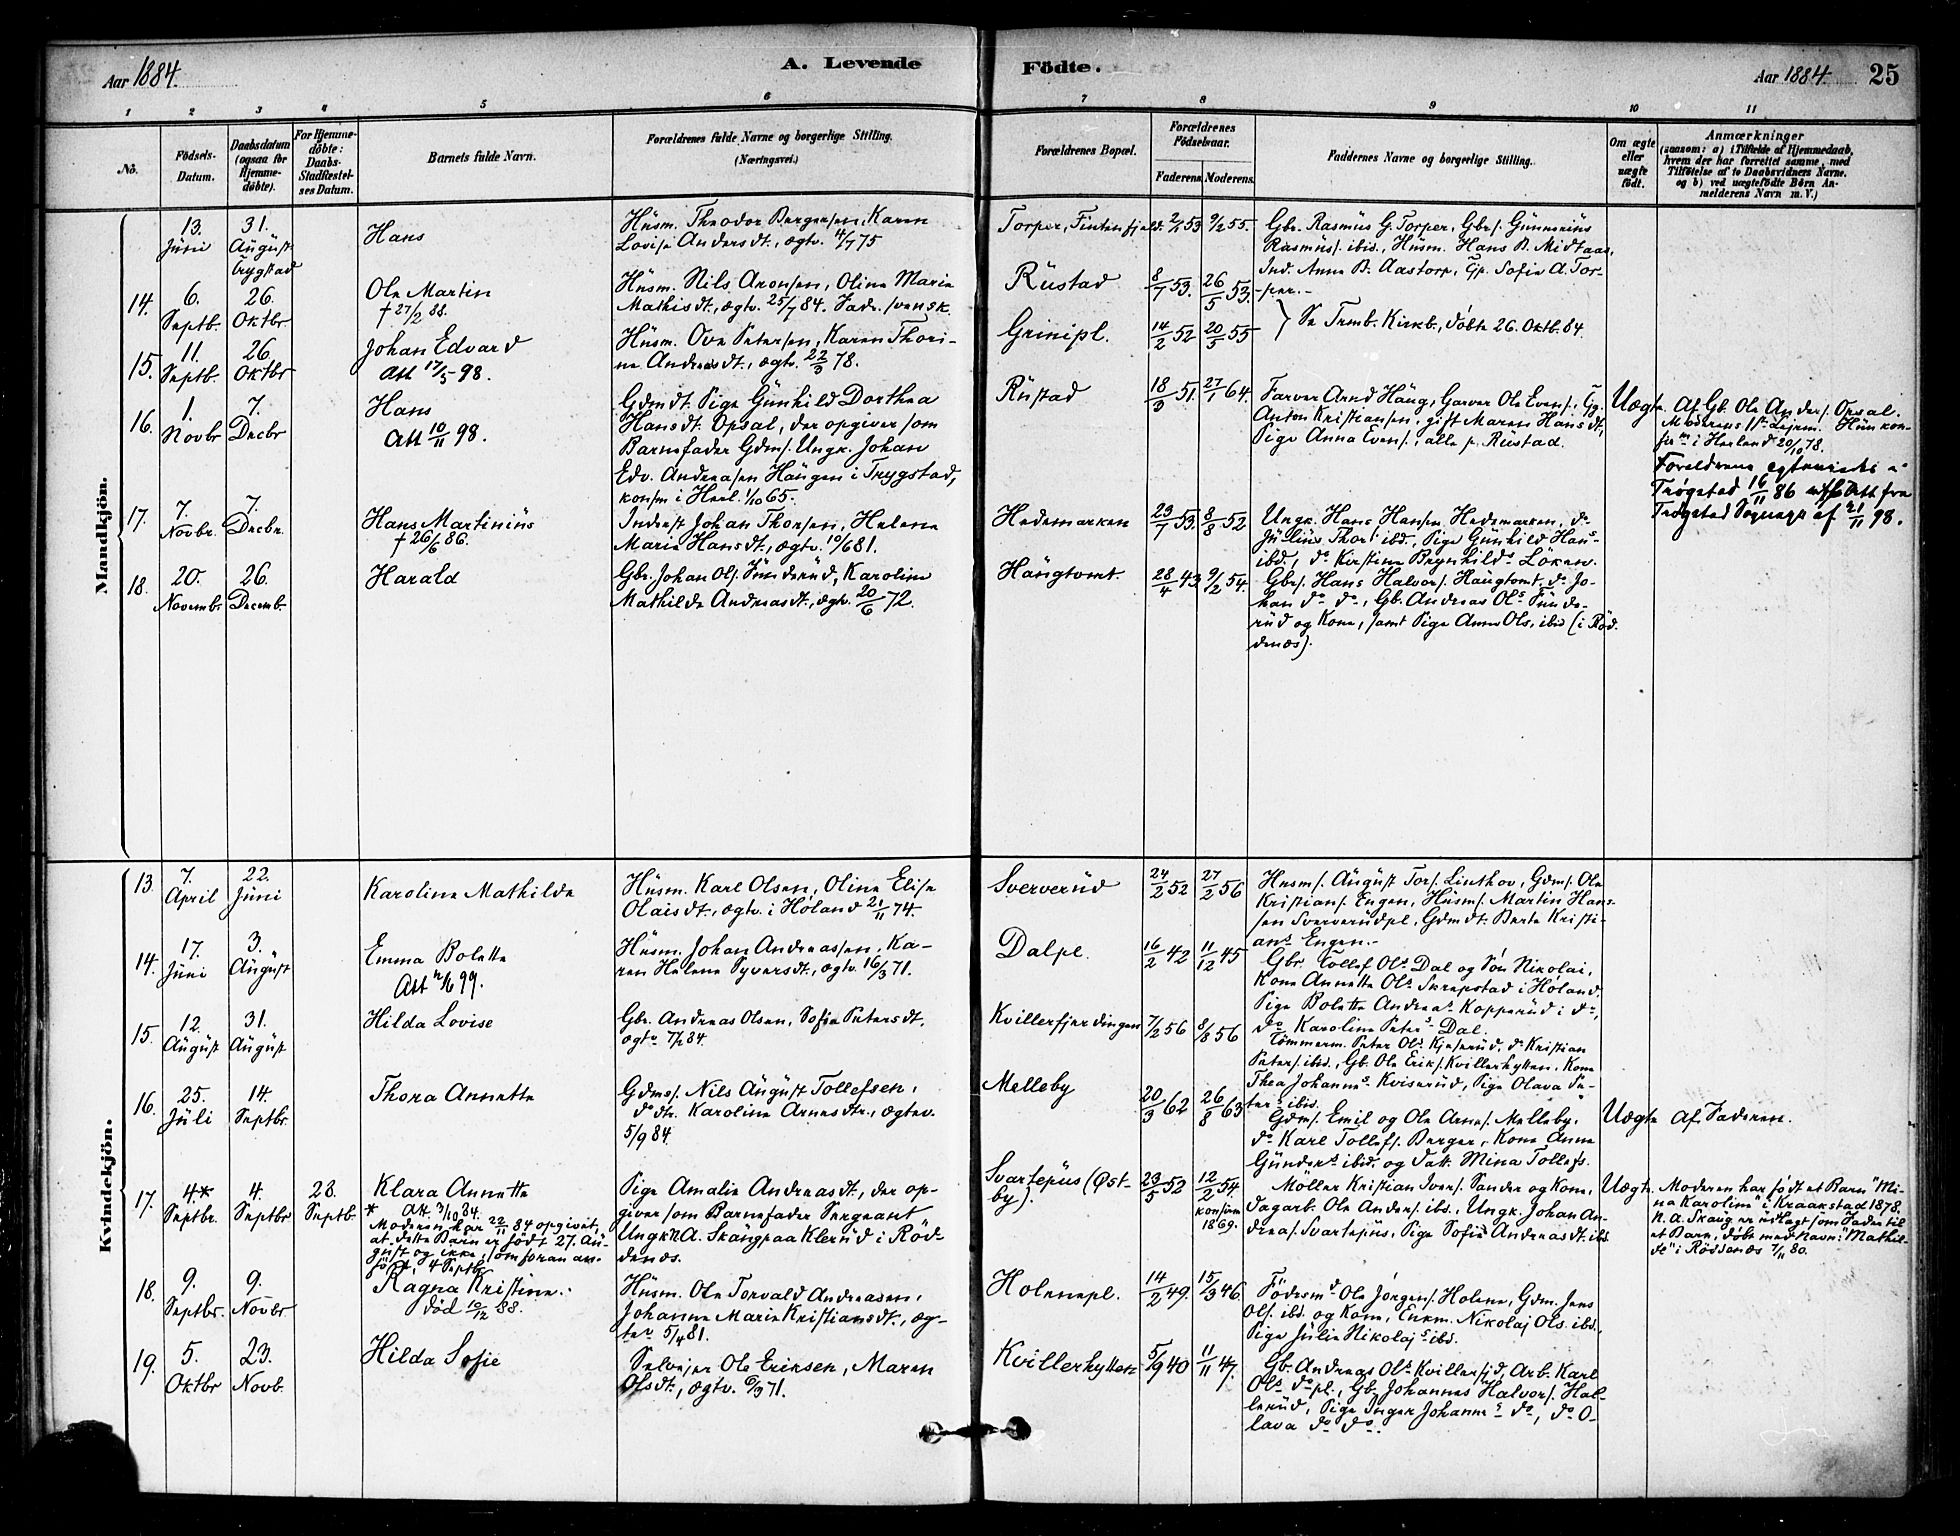 Aar 1884.
A. Levende Födte.
Aar 1884. 25
1 2 3 4 5 6 7 8 9 10 11
No.
Födsels-Datum.
Daabsdatum (ogsaa for Hjemme-döbte).
For Hjemme-döbte: Daabs-Stadfæstel-ses Datum.
Barnets fulde Navn.
Forældrenes fulde Navne og borgerlige Stilling.
(Næringsvei.)
Forældrenes Bopæl.
Forældrenes Födselsaar.
Faderens. Moderens.
Faddernes Navne og borgerlige Stilling.
Om ægte eller uægte födt.
Anmærkninger
(saasom: a) i Tilfælde af Hjemmedaab, hvem der har forrettet samme, med Tilföielse af to Daabsvidners Navne. og b) ved uægtefödte Börn An-melderens Navn m.V.)
Mandkjön.
13. Juni
31. August Trygstad
Hans
Husm. Theodor Bergersen, Karen
Lovise Andersdt., ægtv. 4/7 75
Torper, Fintenfjeld. 2/5 53 9/2 55.
Gbr. Rasmus G. Torper, Gbrs. Gunnerius
Rasmuss. ibid., Husm. Hans B. Midtaas,
Ind. Anne B. Aastorp, Gp. Sofie A. Tor-
per.-
14. 6. Septb. 26. Oktbr.
Ole Martin
† 27/2 88.
Husm. Nils Aronsen, Oline Marie
Mathisdt., ægtv. 25/7 84. Fadr. svensk.
Rustad 8/7 53. 26/5 53.
} Se Tremb. Kirkb., döbte 26. Oktb. 84.
15. 11. Septb. 26. Oktbr
Johan Edvard
Att 17/5 98.
Husm. Ove Petersen, Karen Thori-
ne Andreasdt., ægtv. 22/3 78.
Grinipl. 14/2 52 20/5 55
16. 1. Novbr 7. Decbr
Hans
Att 10/11 98.
Gdmdt. Pige Gunhild Dorthea
Hansdt. Opsal, der opgiver som
Barnefader Gdms. Ungk. Johan
Edv. Andreasen Haugen i Trygstad,
konfm i Herl. 1/10 65.
Rustad 18/9 51. 27/1 64.
Farver Arnd Haug, Garver Ole Evens., Tjg.
Anton Kristiansen, gift Maren Hansdt,
Pige Anna Evens., alle p. Rustad.
Uægte. Af Gb. Ole Anders. Opsal.
Moderens 1ste Lejerm. Hun kon-
firm. i Herland 20/10 78.
Foreldrene egteviede i
Trøgstad 16/11 86 Att fra
Trøgstad Sogneprest af 21/11 98.
17. 7. Novbr. 7. Decbr.
Hans Martinius
† 26/6 86.
Inderst Johan Thorsen, Helene
Marie Hansdt., ægtv. 10/6 81.
Hedemarken 23/7 53. 8/8 52
Ungk. Hans Hansen Hedemarken, do
Julius Thors ibd., Pige Gunhild Hans-
ibd., do Kirstine Brynhilds- Löken.
18. 20. Novembr. 26. Decemb.
Harald
Gbr. Johan Ols. Sunderud, Karoline
Mathilde Andreasdt., ægtv. 20/6 72.
Haugtomt. 28/4 43 9/2 54.
Gbrs. Hans Halvors. Haugtomt, do Jo-
han do do, Gb. Andreas Ols Sunde-
rud og Kone, samt Pige Anne Ols, ibid (i Röd-
denæs).
Kvindekjön.
13. 7. April 22. Juni
Karoline Mathilde
Husm. Karl Olsen, Oline Elise
Olaisdt., ægtv. i Höland 21/11 74.
Sververud 24/2 52 27/2 56
Husms. August Tors. Linthov, Gdms. Ole
Kristians. Engen, Husms. Martin Hans-
sen Sververudpl., Gdmdt. Berte Kristi-
ans Engen.-
14. 17. Juni 3. August
Emma Bolette
Att 99.
Husm. Johan Andreassen, Ka-
ren Helene Syversdt., ægtv. 16/3 71.
Dalpl. 16/2 42 11/12 45
Gbr. Tollef Ols Dal og Sön Nikolai,
Kone Annette Ols Skrepstad i Höland,
Pige Bolette Andreas Kopperud i do,
do Karoline Peters- Dal.
15. 12. August 31. August
Hilda Lovise
Gbr. Andreas Olsen, Sofie Petersdt.
ægtv 7/2 84.
Kvillerfjerdingen 7/2 56 8/8 56
Tömmerm. Peter Ols Kjeserud, do Kristian
Peters. ibid., Gb. Ole Eriks. Kvillerhytten, Kone
Thea Johannes Kviserud, Pige Olava Pe-
ters ibid.
16. 25. Juli 14. Septbr.
Thora Annette
Gdms. Nils August Tollefsen,
do dtr. Karoline Arnesdtr., ægtev.
5/9 84.
Melleby 20/3 62 26/8 63
Gdms. Emil og Ole Arnes. Melleby,
do Karl Tollefs. Berger, Kone Anne
Gunders ibid. og Datt. Mina Tollefs.
Uægte Af Faderen.
17. 4* Septbr. 4. Septbr 28. Septb.
Klara Annette
* Att. 3/10 84.
Moderen har 22/11 84 opgivet,
at dette Barn er födt 27. Au-
gust og ikke, som foran an-
fört, 4 Septbr.
Pige Amalie Andreasdt., der op-
giver som Barnefader Sergeant
Ungk N.A. Skaug paa Klerud i Röd-
denæs.
Svartepus (Øst-
by). 23/5 52 12/2 54.
konfirm 1869.
Möller Kristian Ivers. Sander og Kone,
Dagarb. Ole Anders. ibd., Ungk. Johan An-
dreas. Svartepus, Pige Sofie Andreasdt. ibd
Uægte. Moderen har födt et Barn "Mi-
na Karoline" i Kraakstad 1878.
N.A. Skaug er udlagt som Fader til
et Barn, döbt med Navn: "Mathil-
de" i Röddenæs 7/11 80.
18. 9. Septbr. 9. Novbr
Ragna Kristine.
Död 10/12 88.
Husm. Ole Torvald Andreasen,
Johanne Marie Kristiansdt., æg-
tev 5/4 81.
Holenepl. 14/2 49. 15/3 46.
Födesmd Ole Jörgens. Holene, Gdm. Jens
Ols. ibd. og Kone, Enkm. Nikolaj Ols. ibd.,
Pige Julie Nikolajs ibd.
19. 5. Oktbr 23. Novb.
Hilda Sofie
Selvejer Ole Eriksen, Maren
Olsdt., ægtv. 6/3 71.
Kvillerhytten 5/9 40 11/11 47.
Gb. Andreas Ols Kvillerfjd, Arb. Karl
Ols do pl., Gb. Johannes Halvors. Hal-
lerud, Pige Inger Johannes do, do O-
lava do do.